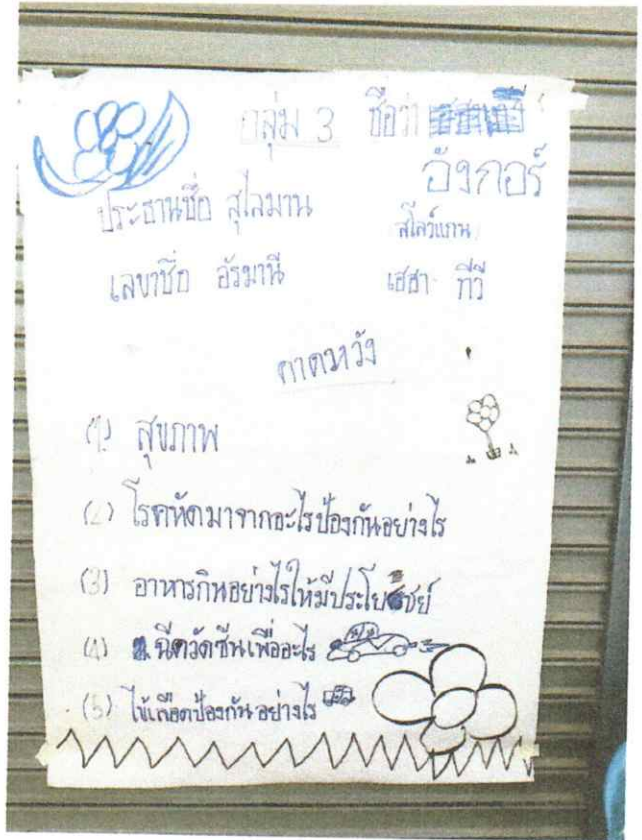 กลุ่ม 3 ชื่อว่า
อังกอร์
ประธานชื่อ สุไลมาน
สโลว์แกน
เลขาชื่อ อัรมานี
เฮฮา ทีวี
คาดหวัง
(1) สุขภาพ
(2) โรคหัดมาจากอะไรป้องกันอย่างไร
(3) อาหารกินอย่างไรให้มีประโยชย์
(4) ฉีดวัดซีนเพื่ออะไร
(5) ไข้เลือดป้องกันอย่างไร